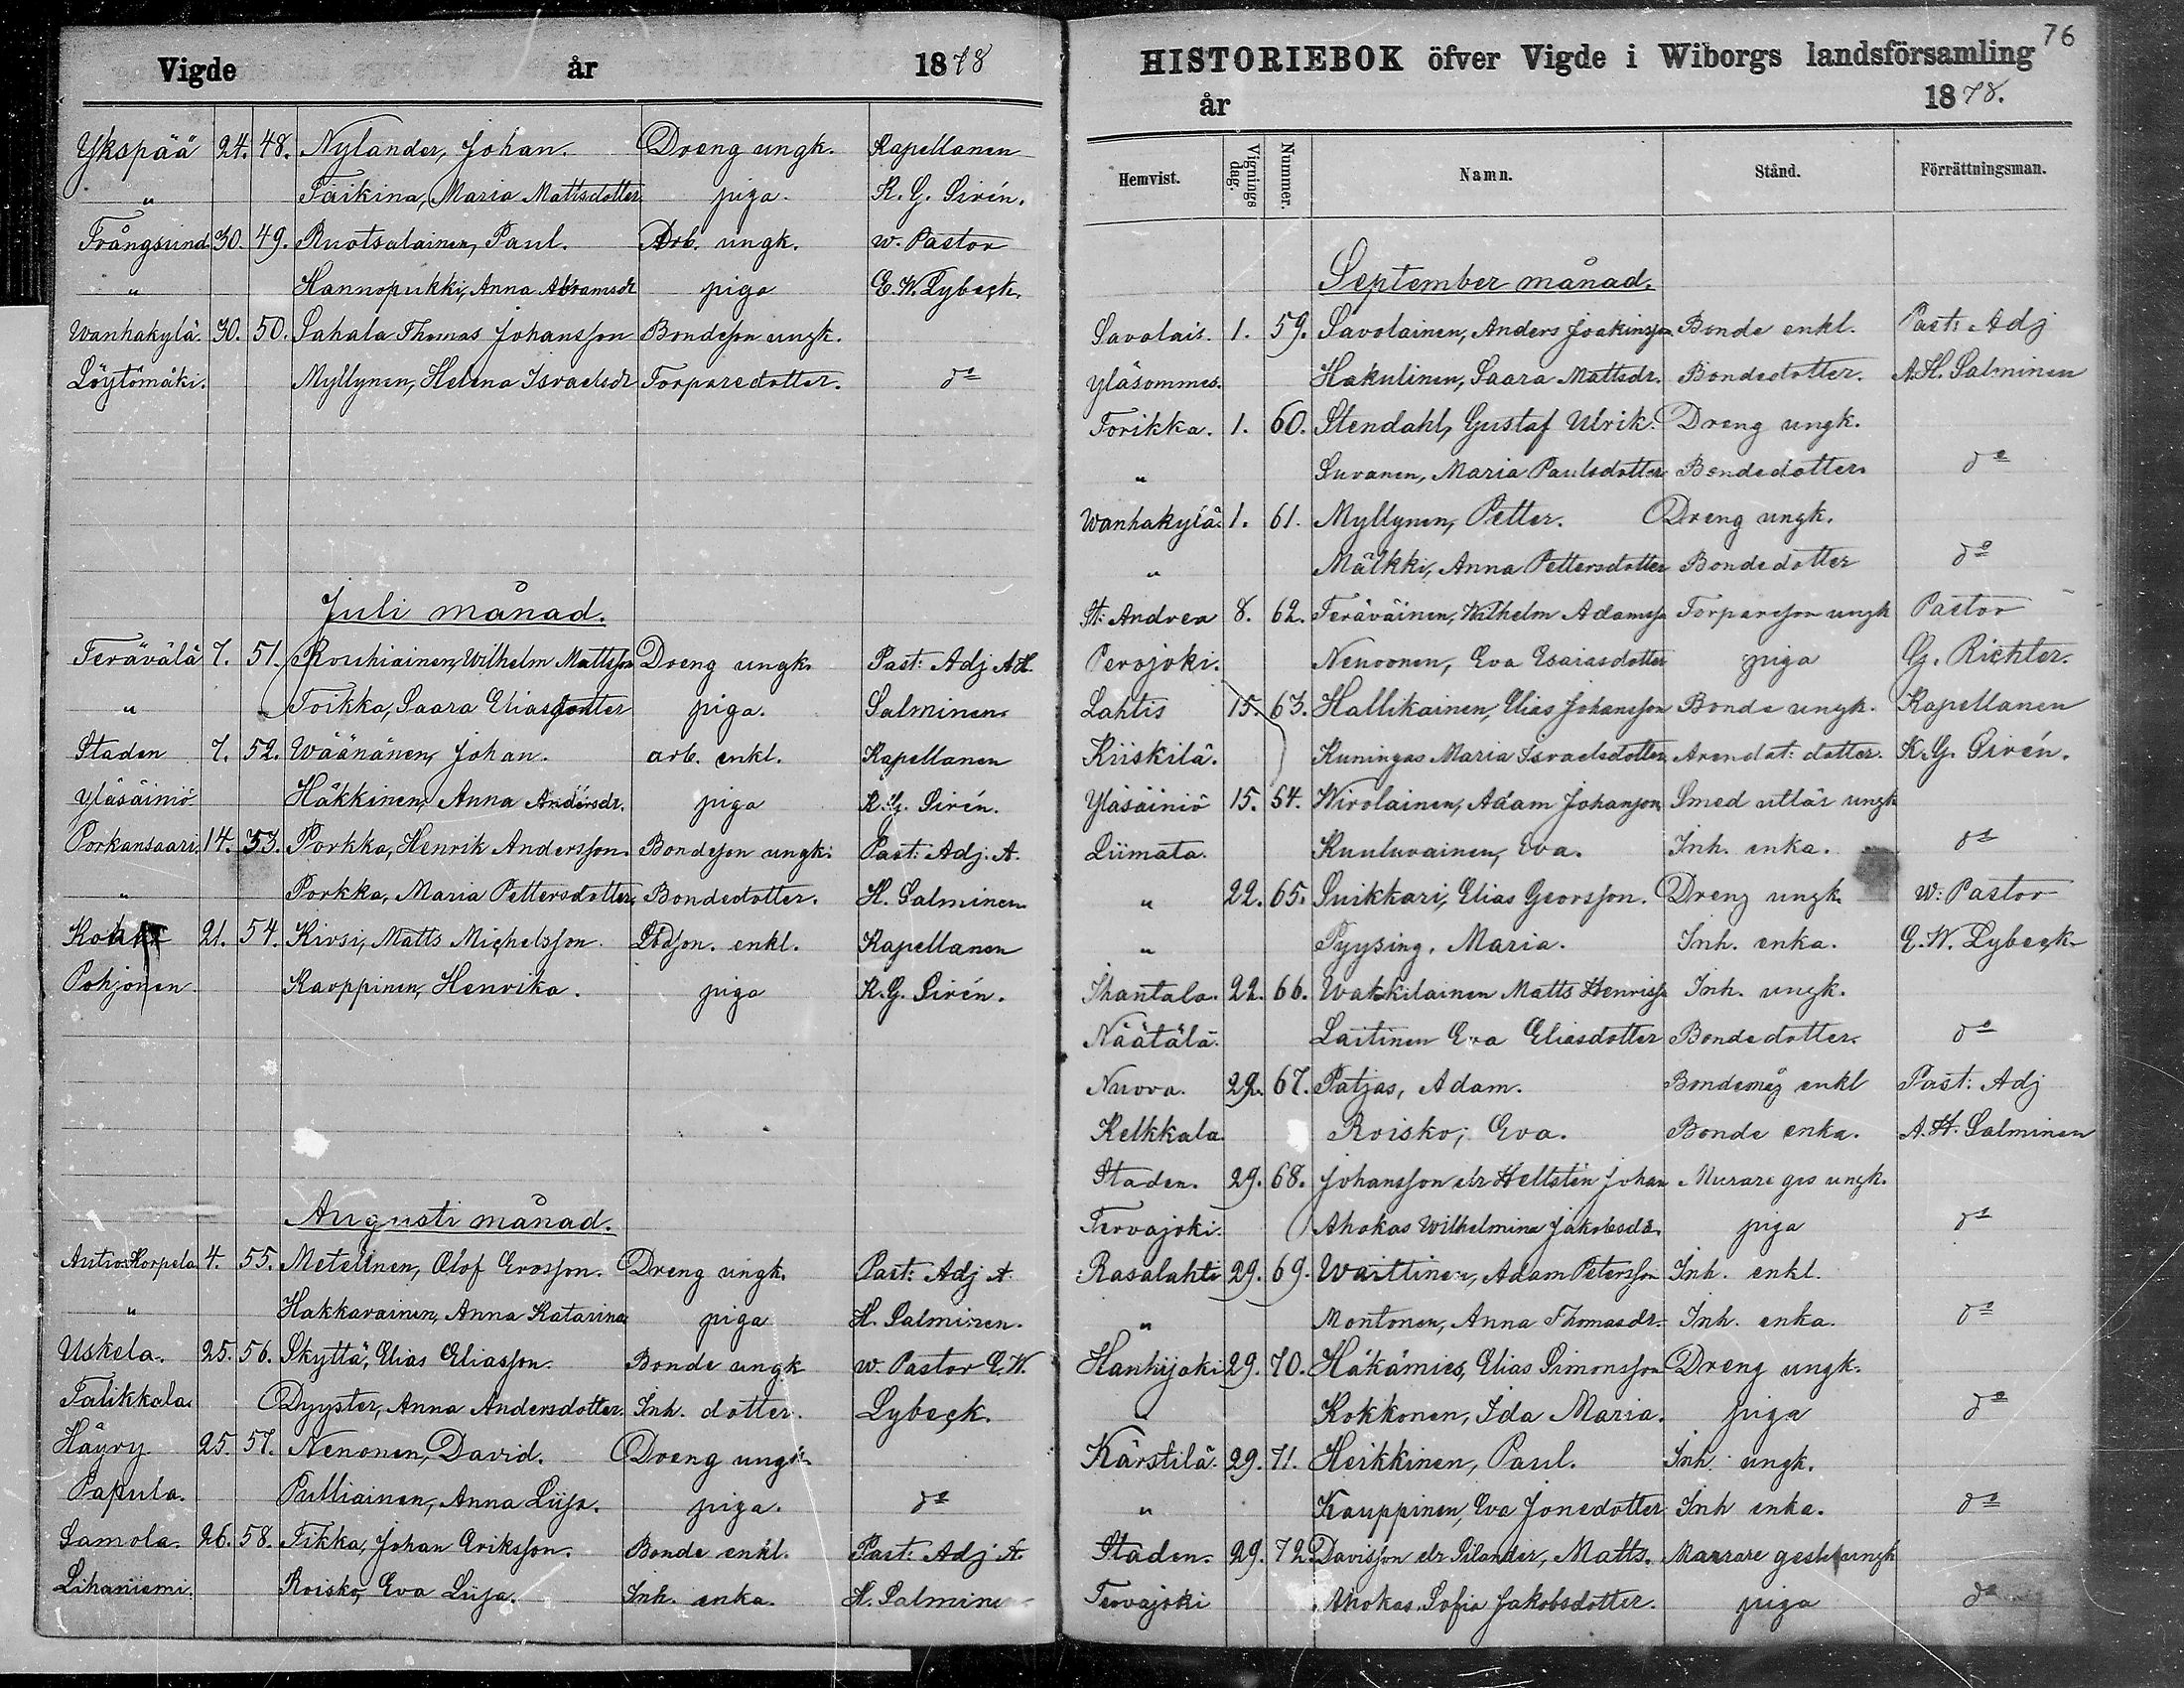 Vigde år 1878
Ykspää 24. 48. Nylander, Johan. Dreng ungk. Kapellanen
" Täikinä, Maria Mattsdotter piga. K. G. Sirén.
Trångsund 30. 49. Ruotsalainen, Paul. Arb. ungk. w. Pastor
" Hannopukki, Anna Abramsdr piga E. W. Lybeck.
Wanhakylä. 30. 50. Sahala Thomas Johansson Bondeson ungk.
Löytömäki. Myllynen, Helena Israelsdr Torparedotter. do
Juli månad.
Terävälä 7. 51. Rouhiainen, Wilhelm Mattsson Dreng ungk. Past: Adj A H.
" Toikka, Saara Eliasdotter piga. Salminen
Staden 7. 52. Wäänänen, Johan. arb. enkl. Kapellanen
Yläsäiniö Häkkinen, Anna Andersdr. piga K. G. Sirén.
Porkansaari. 14. 53. Porkka, Henrik Andersson. Bondeson ungk: Past: Adj. A.
" Porkka, Maria Pettersdotter, Bondedotter. H. Salminen
21. 54. Kirsi, Matts Michelsson. Lbdson. enkl. Kapellanen
Pohjonen. Karppinen, Henrika. piga K. G. Sirén.
Augusti månad.
Antrea Korpela 4. 55. Metelinen, Olof Erosson. Dreng ungk. Past: Adj A.
" Hakkarainen, Anna Katarina piga H. Salminen.
Uskela. 25. 56. Skyttä, Elias Eliasson. Bonde ungk w. Pastor E. W.
Talikkala. Dyyster, Anna Andersdotter. Inh. dotter. Lybeck.
Häyry 25. 57. Nenonen, David. Dreng ungk.
Papula. Pulliainen, Anna Liisa. piga. do
Samola. 26. 58. Tikka, Johan Eriksson. Bonde enkl. Past: Adj A.
Lihaniemi. Roisko, Eva Liisa. Inh. enka. H. Salminen
76
HISTORIEBOK öfver Vigde i Wiborgs landsförsamling
år 1878.
Hemvist. Vignings dag. Nummer. Namn. Stånd. Förrättningsman.
September månad.
Savolais. 1. 59. Savolainen, Anders Joakinsson Bonde enkl. Past: Adj
Yläsommes. Hakulinen, Saara Mattsdr. Bondedotter. A. H. Salminen
Torikka. 1. 60. Stendahl, Gustaf Ulrik. Dreng ungk.
" Suvanen, Maria Paulsdotter Bondedotter. do
Wanhakylä. 1. 61. Myllynen, Petter. Dreng ungk.
" Mälkki, Anna Pettersdotter Bondedotter do
St: Andrea 8. 62. Teräväinen, Wilhelm Adamsson Torpareson ungk Pastor
Perojoki. Nenonen, Eva Esaiasdotter piga G. Richter.
Lahtis 15. 63. Hallikainen, Elias Johansson Bonde ungk. Kapellanen
Kiiskilä. Kuningas Maria Israelsdotter Arendat: dotter. K. G. Sirén.
Yläsäiniö 15. 64. Wirolainen, Adam Johansson Smed utlär ungk
Liimata. Kuuluvainen, Eva. Inh. enka. do
" 22. 65. Suikkari, Elias Georsson. Dreng ungk. w: Pastor
" Pyysing, Maria. Inh. enka. E. W. Lybeck
Ihantala. 22. 66. Wakkilainen Matts Henriss Inh. ungk.
Näätälä. Laitinen Eva Eliasdotter Bondedotter. do
Nuora. 29. 67. Patjas, Adam. Bondemåg enkl Past: Adj
Kelkkala. Roisko, Eva. Bonde enka. A. H. Salminen
Staden. 29. 68. Johansson elr Hellstén Johan Murare ges ungk.
Tervajoki. Ahokas Wilhelmina Jakobsdr. piga do
Rasalahti 29. 69. Waittinen, Adam Petersson Inh. enkl.
" Montonen, Anna Thomasdr. Inh. enka. do
Hanhijoki 29. 70. Häkämies, Elias Simonsson Dreng ungk.
" Kokkonen, Ida Maria. piga do
Kärstilä. 29. 71. Heikkinen, Paul. Inh. ungk.
" Kauppinen, Eva Jonedotter Inh enka. do
Staden. 29. 72. Davisson elr Silander, Matts. Murare gesel ungk
Tervajoki Ahokas, Sofia Jakobsdotter. piga do